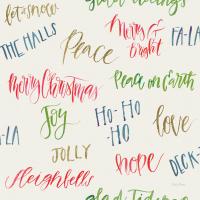 let it snow
glad tidings
THE HALLS
Peace
Merry &
bright
FA-LA
Merry Christmas
Peace on Earth
Joy
HO-HO
-HO
love
-LA
JOLLY
hope
DECK
Sleighbells
glad Tidings